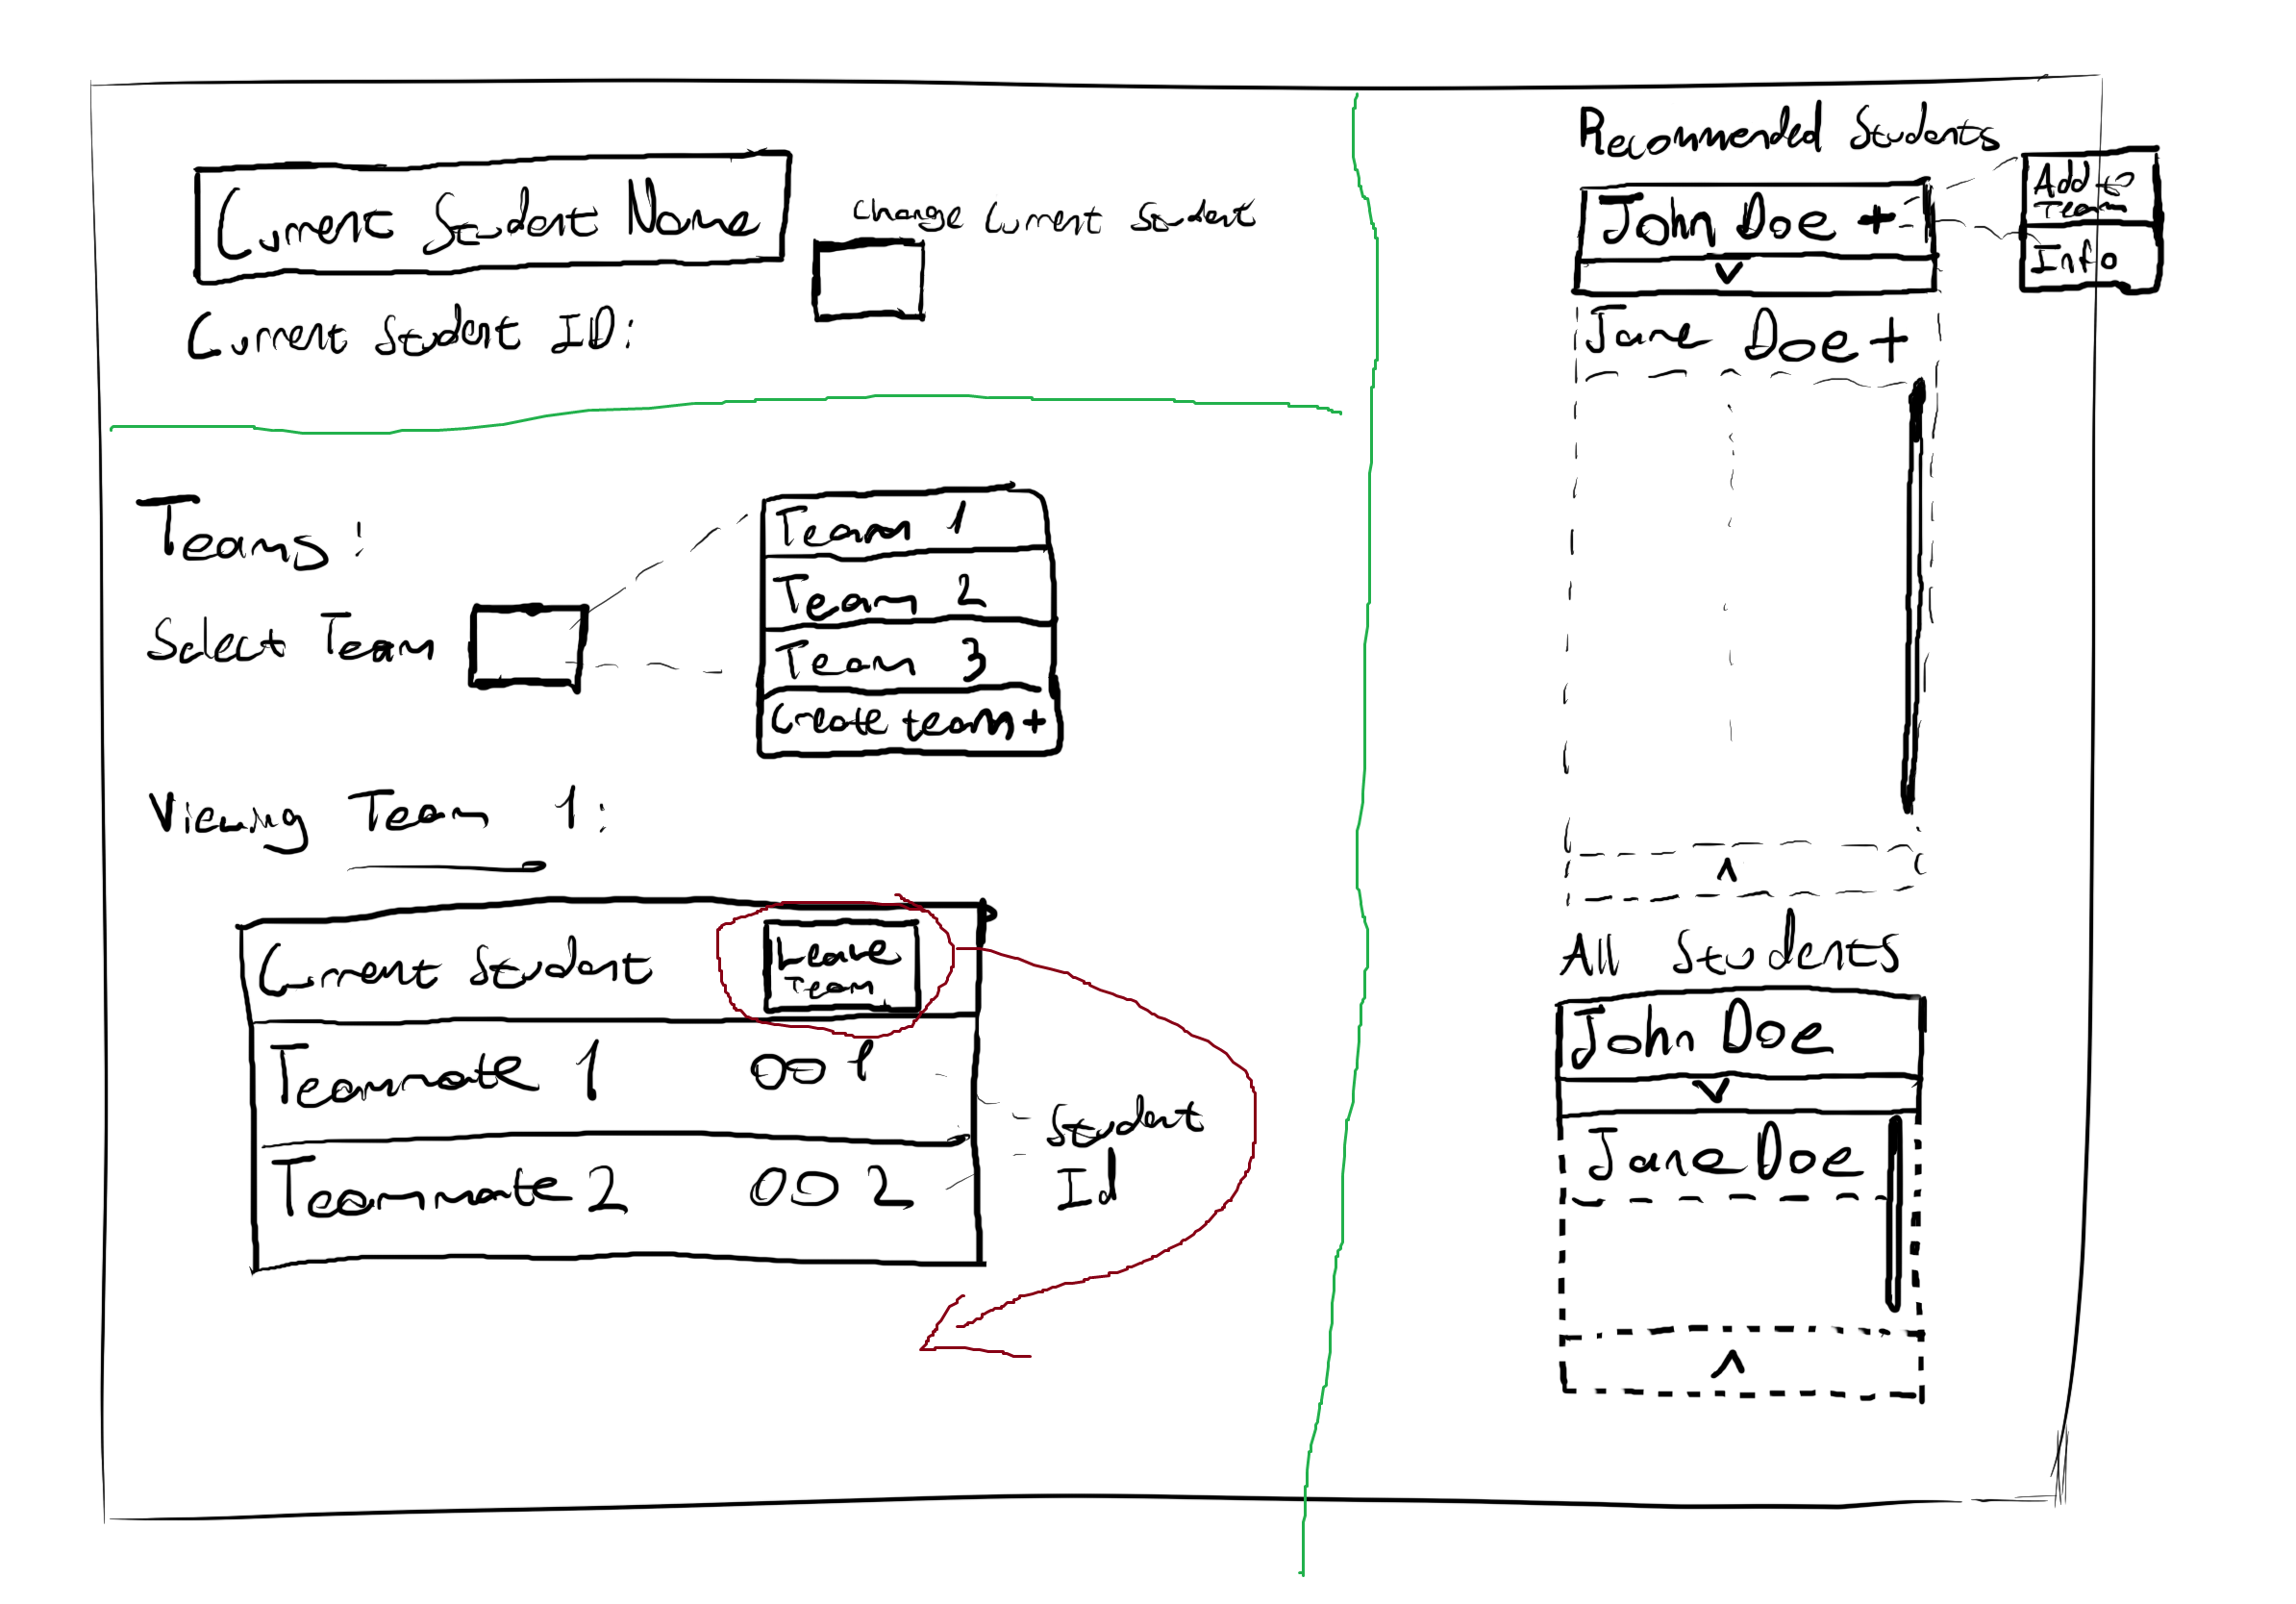 Current Student Name
Change Current Student
Current Student ID:
Teams:
Select Team
Team 1
Team 2
Team 3
Create team +
Viewing Team 1:
Current Student
Leave
Team
Teammate 1 001
Teammate 2 002
Student
Id
Recommended Students
John Doe +
Add to
Team
Info
Jane Doe +
All Students
John Doe
Jane Doe